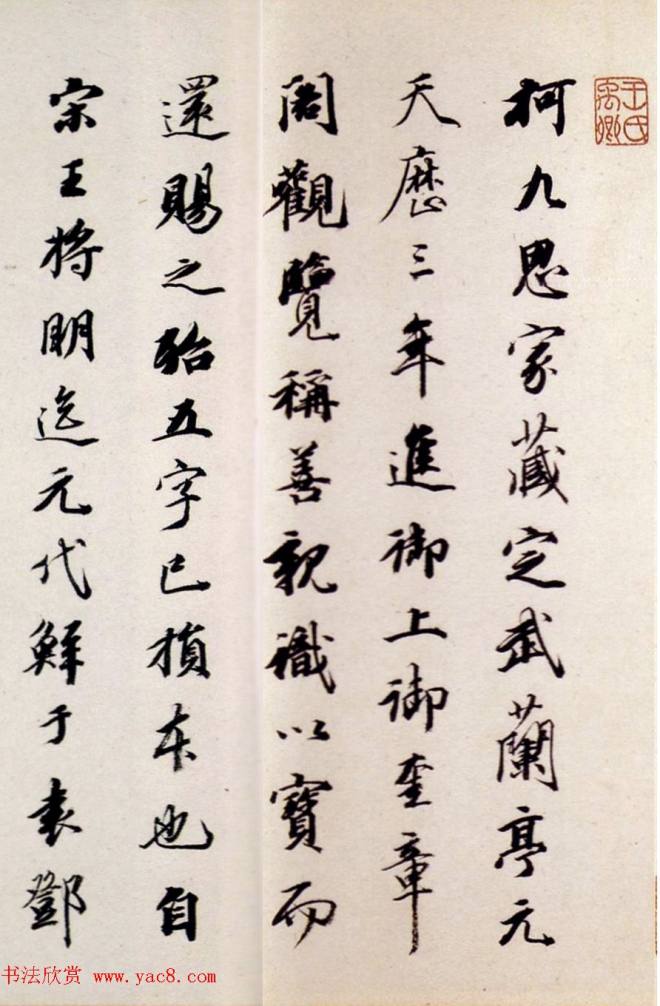 柯九思家藏定武蘭亭元
天歷三年進御上御奎章
閣觀覽稱善親識以寶而
還賜之殆五字已損本也自
宗王將明迄元代鮮于袁鄧
王氏禹卿
书法欣赏 www.yac8.com